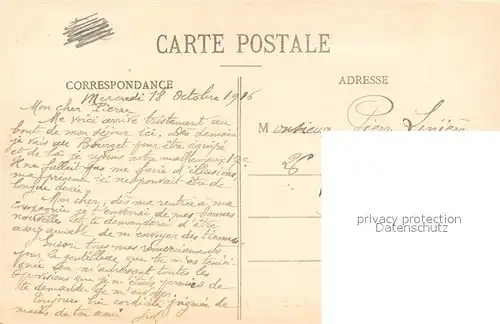 CARTE POSTALE
CORRESPONDANCE
ADRESSE
Mercredi 18 Octobre 1916
Mon cher Pierre
Me voici arrivé tristement au
bout de mon séjour ici. Dès demain
je vais au Bourget pour être équipé
et de là je rejoins notre
Il ne fallait pas me faire d'illusions
ma présence ici ne pouvait être de
longue durée.
Mon cher, dès ma rentrée à ma
compagnie je t'enverrai de mes bonnes
nouvelles et te demanderai d'être
assez aimable de m'envoyer des tiennes
tous mes remerciements
pour la gentillesse que tu m'as témoi-
gnée en m'adressant toutes les
provisions que je m'étais permis de
te demander de
Toujours bien cordiale poignée de
mains de ton ami
Monsieur Pierre
privacy protection
Datenschutz